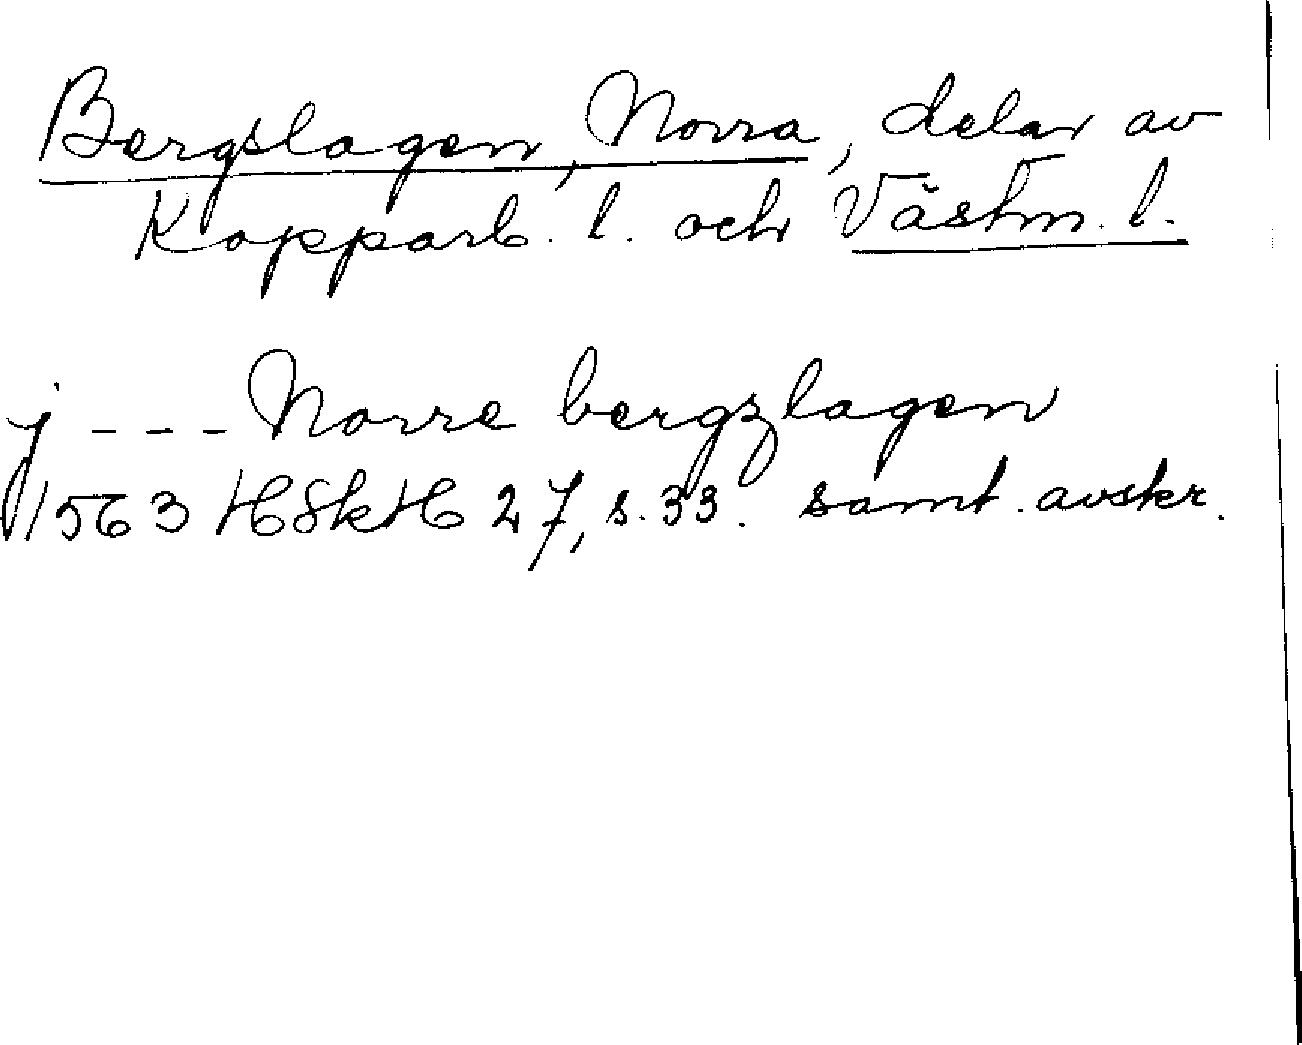 Bergslagen, Norra, delar av
Kopparb. l. och Västm. l.
j --- Norre bergzlagen
1563 HSkH 27, s. 33. samt. avskr.